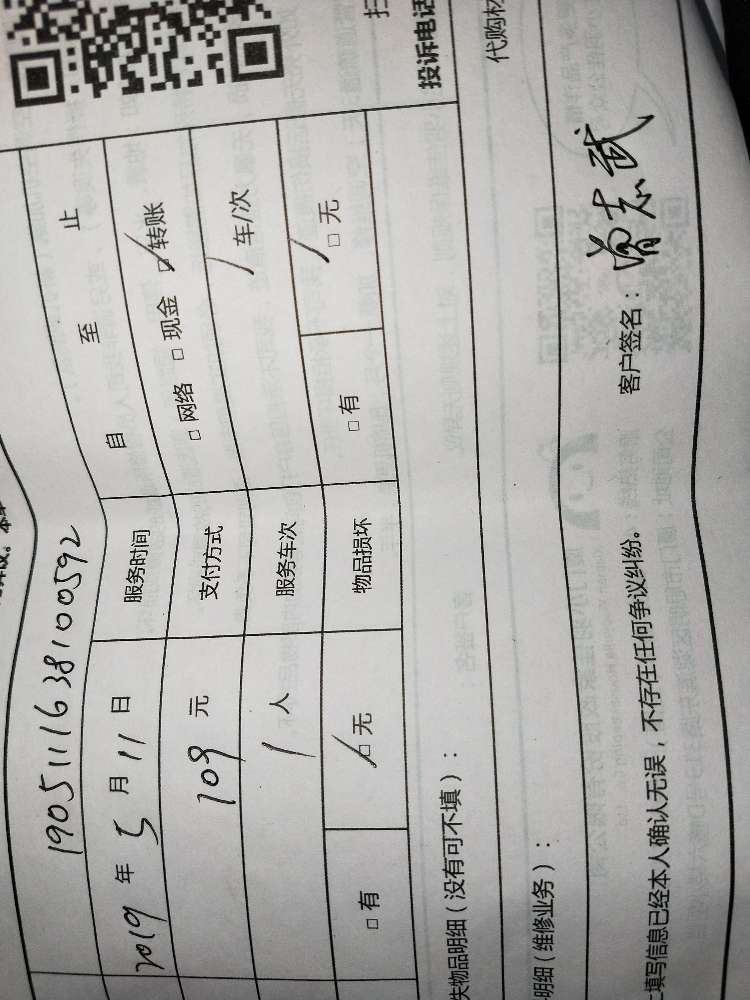 扫
投诉电话
1905111638100592
2019 年 5 月 11 日 服务时间 自 至 止
109 元 支付方式 □ 网络 □ 现金 □ 转账
1 人 服务车次 1 车/次
□ 有 □ 无 物品损坏 □ 有 □ 无
失物品明细(没有可不填):
代购材
明细(维修业务):
填写信息已经本人确认无误,不存在任何争议纠纷。 客户签名: 曾志武